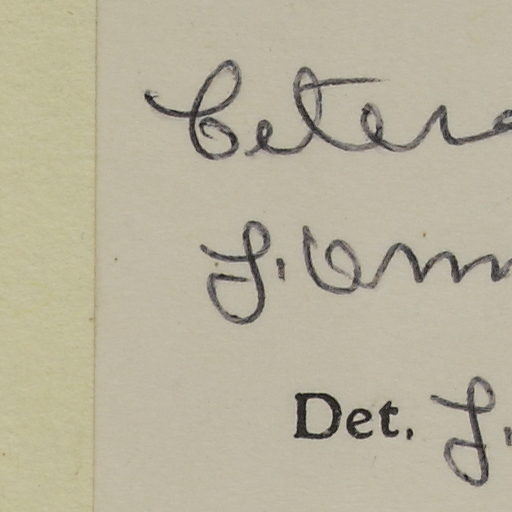 Cetera
J. Omm
Det. J.